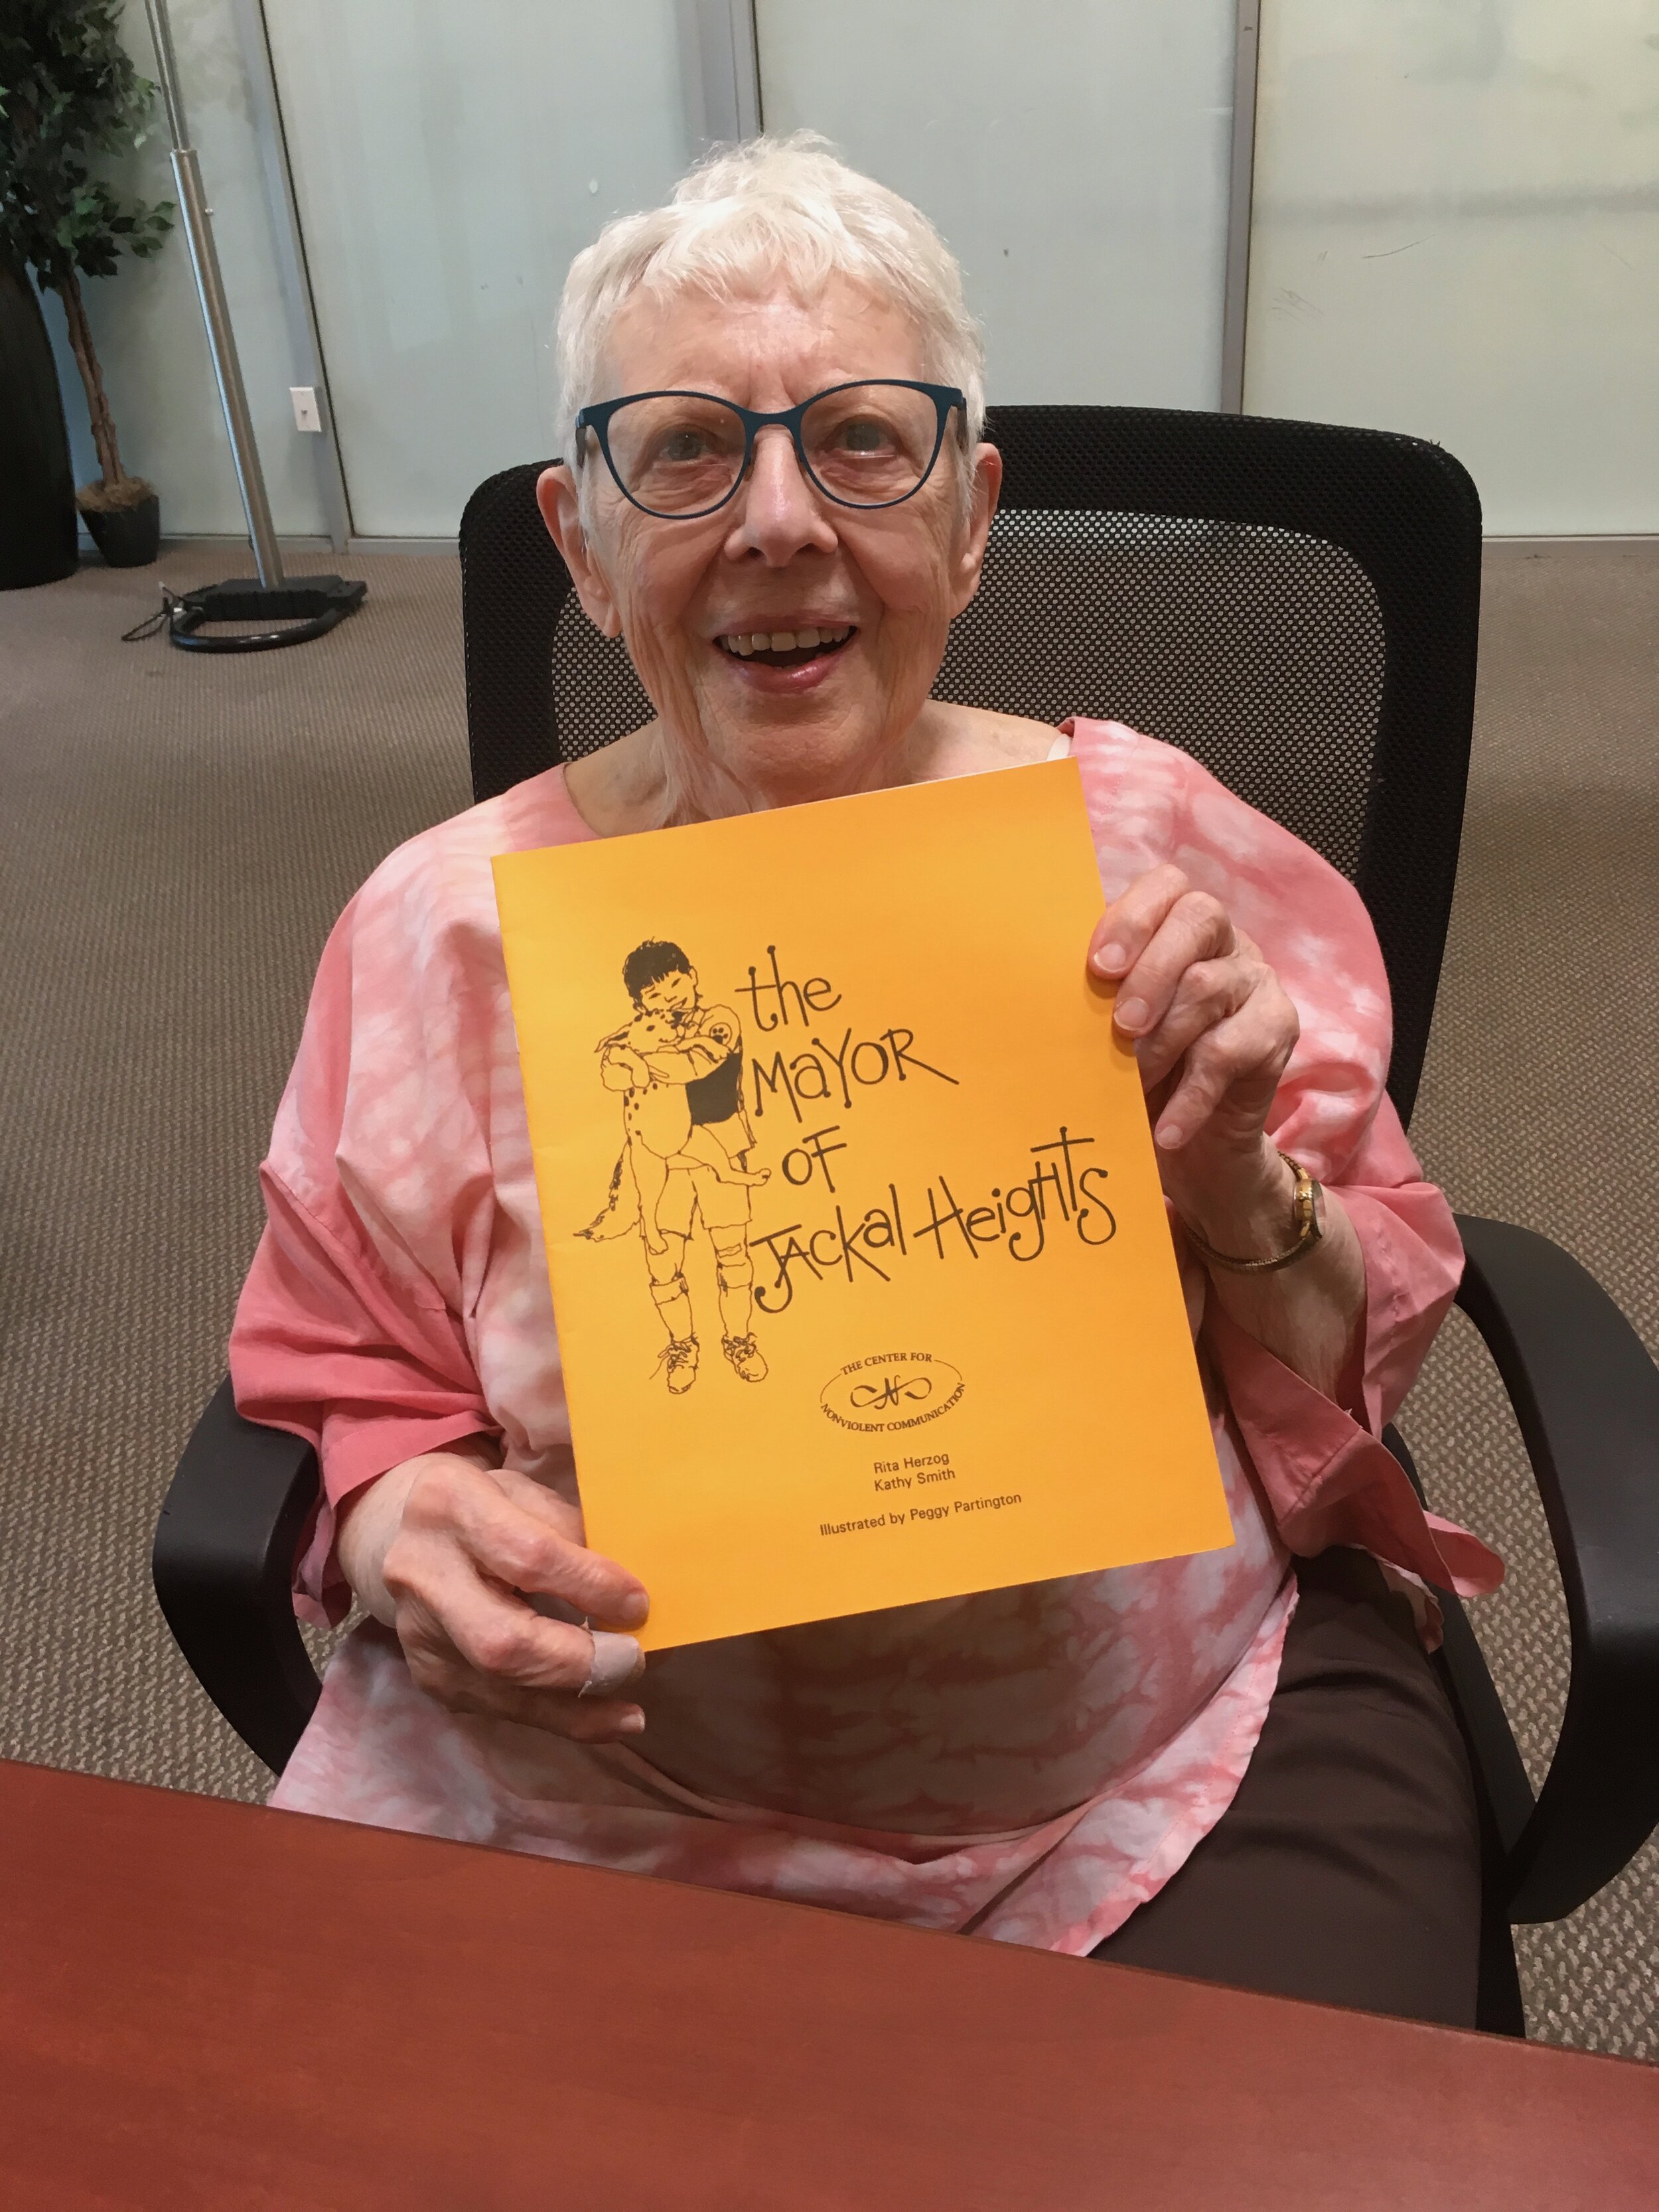 the
MaYOR
OF
JAckal HeigHTS
THE CENTER FOR
N
NONVIOLENT COMMUNICATION
Rita Herzog
Kathy Smith
Illustrated by Peggy Partington